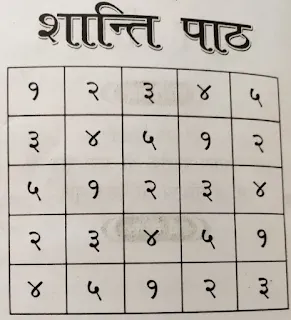 शान्ति पाठ
१ २ ३ ४ ५
३ ४ ५ १ २
५ १ २ ३ ४
२ ३ ४ ५ १
४ ५ १ २ ३